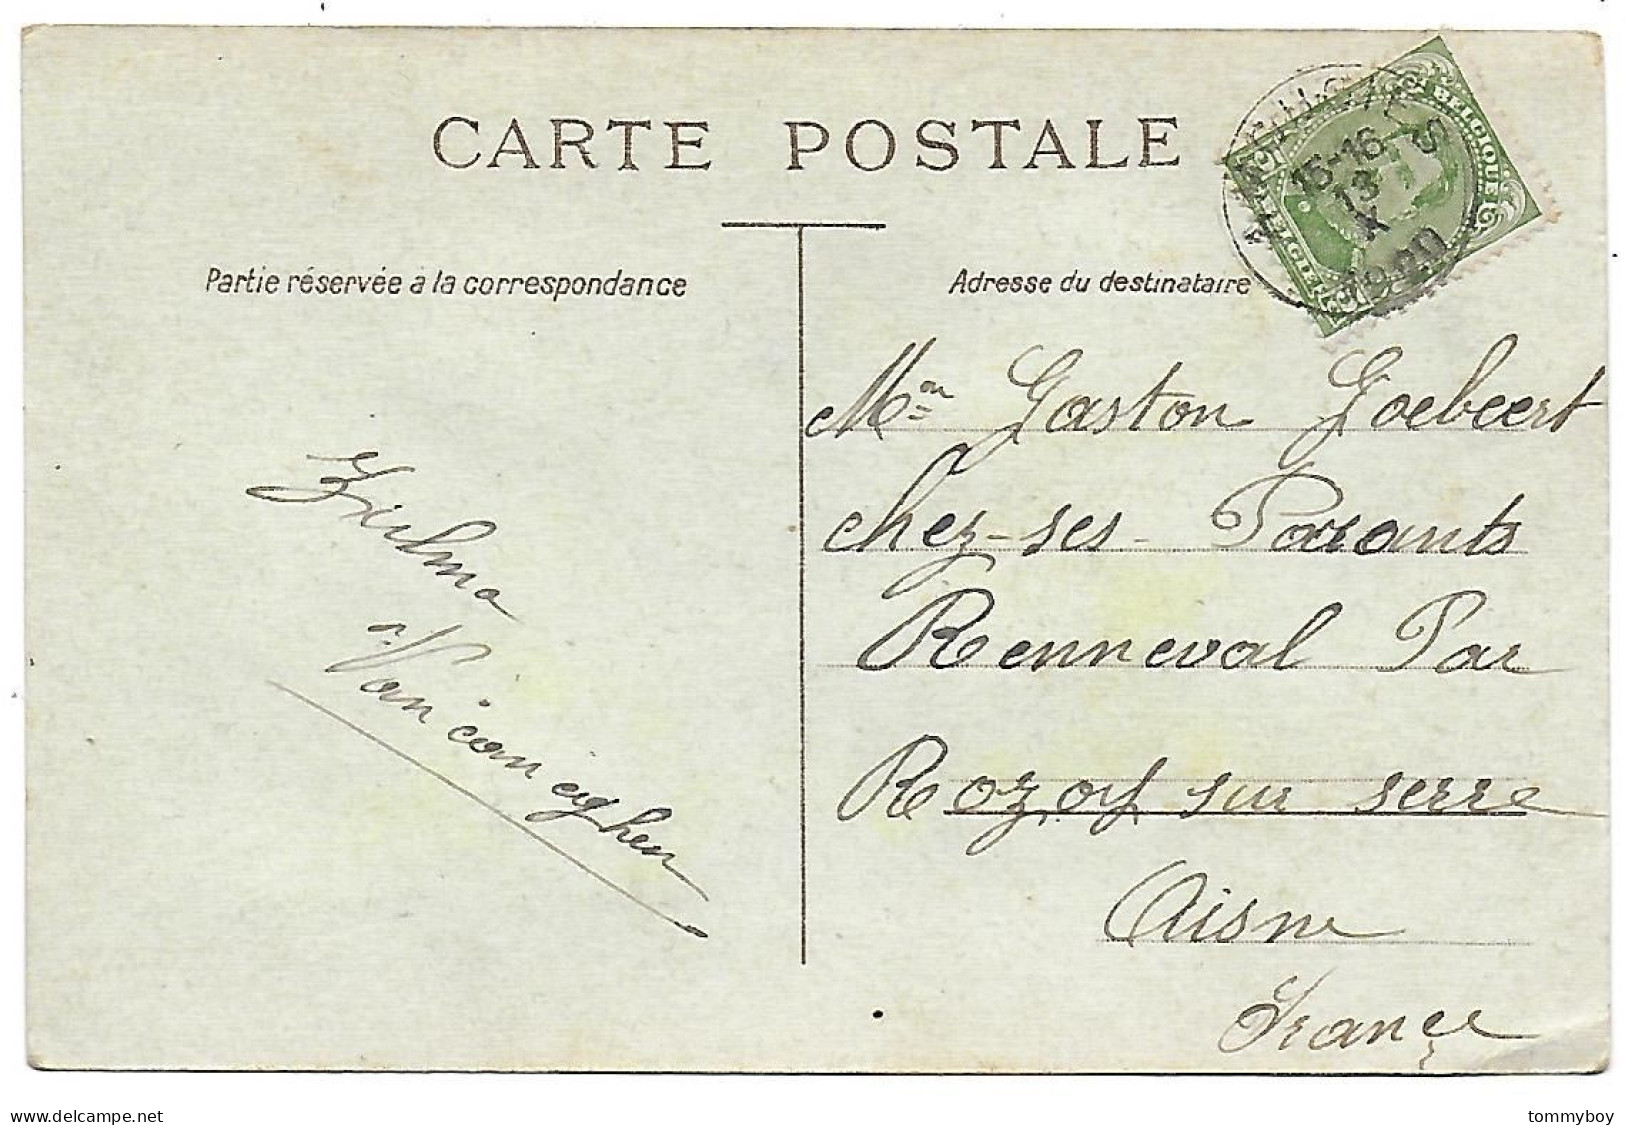 CARTE POSTALE
Partie réservée à la correspondance
Adresse du destinataire
BELGIQUE
BELGIË
15-16
13
X
Mon Gaston Goebeert
chez-ses-Parants
Renneval Par
Rozoy sur serre
Aisne
France
Zulma
Van
eighen
www.delcampe.net
tommyboy